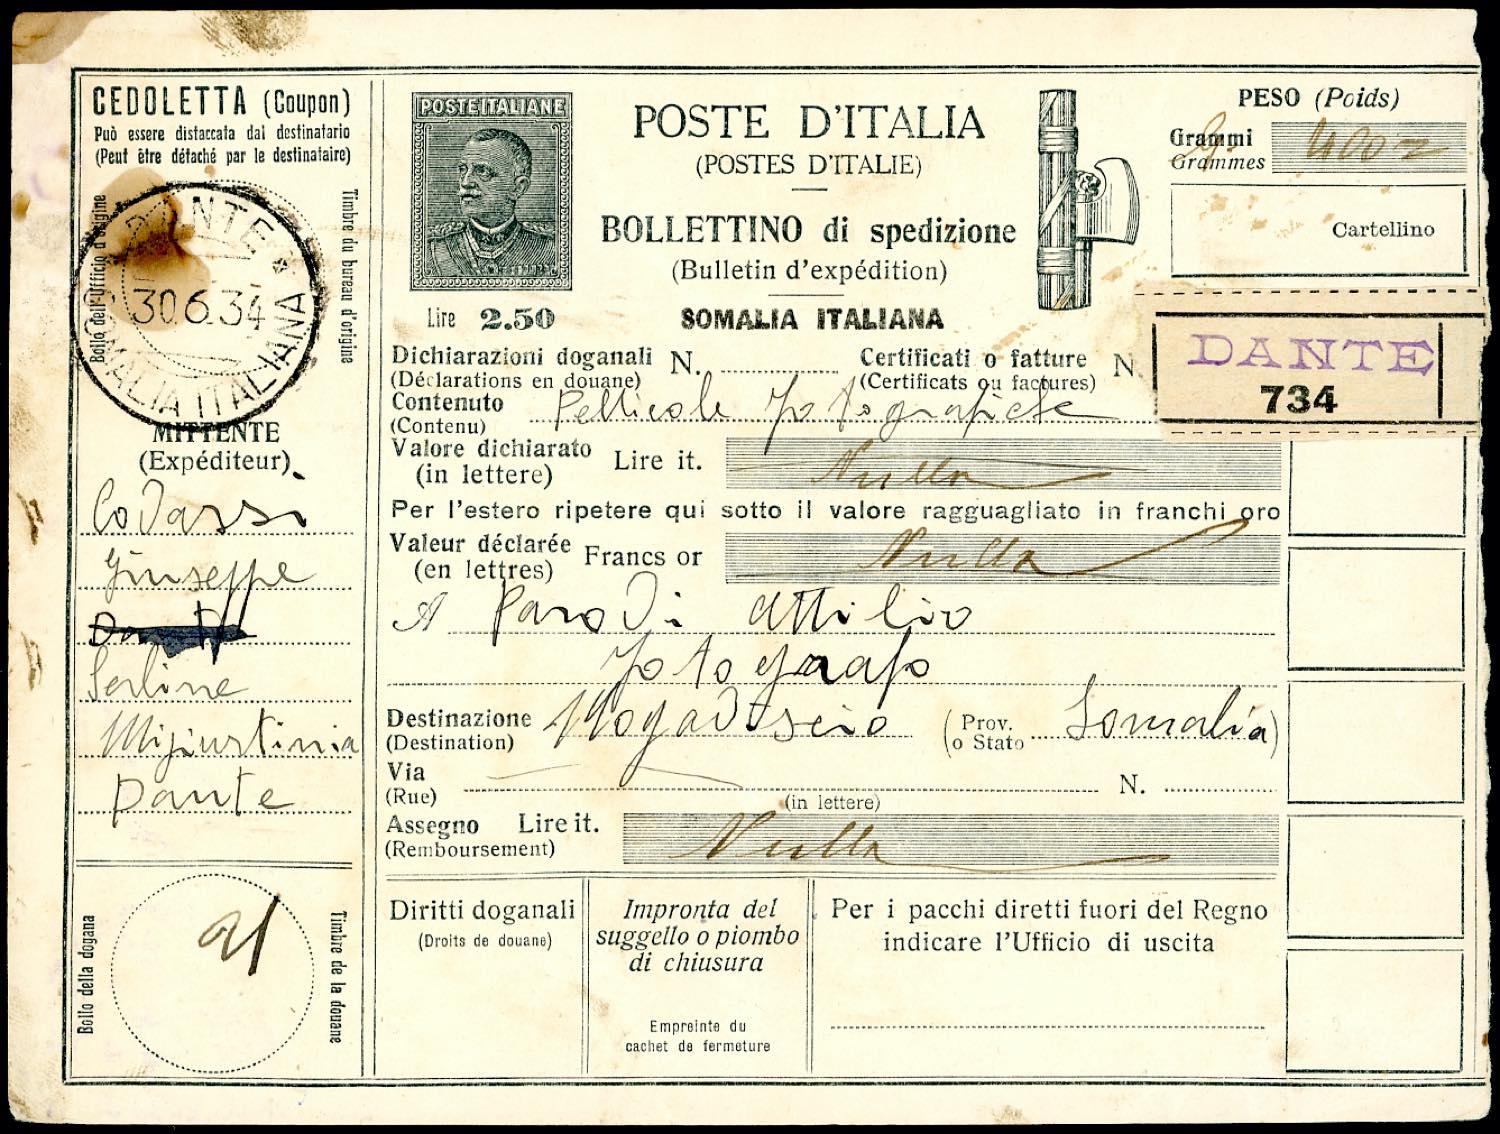 CEDOLETTA (Coupon)
Può essere distaccata dal destinatario
(Peut être détaché par le destinataire)
Bollo dell'Ufficio d'origine
Timbre du bureau d'origine
DANTE
30.6.34
SOMALIA ITALIANA
MITTENTE
(Expéditeur)
Codassi
Giuseppe
Saline
Migiurtinia
Dante
Bollo della dogana
Timbre de la douane
POSTE ITALIANE
Lire 2.50
POSTE D'ITALIA
(POSTES D'ITALIE)
BOLLETTINO di spedizione
(Bulletin d'expédition)
SOMALIA ITALIANA
PESO (Poids)
Grammi 400
Grammes
Cartellino
DANTE
734
Dichiarazioni doganali N.
(Déclarations en douane)
Certificati o fatture N.
(Certificats ou factures)
Contenuto Pellicole fotografiche
(Contenu)
Valore dichiarato
(in lettere)
Lire it. Nulla
Per l'estero ripetere qui sotto il valore ragguagliato in franchi oro
Valeur déclarée
(en lettres)
Francs or Nulla
A Parodi Attilio
fotografo
Destinazione Mogadiscio (Prov. o Stato Somalia)
(Destination)
Via
(Rue)
N.
(in lettere)
Assegno Lire it. Nulla
(Remboursement)
Diritti doganali
(Droits de douane)
Impronta del
suggello o piombo
di chiusura
Empreinte du
cachet de fermeture
Per i pacchi diretti fuori del Regno
indicare l'Ufficio di uscita